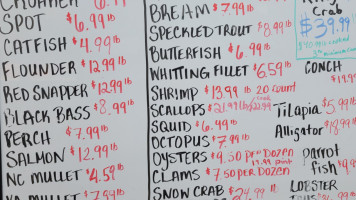 CROAKER 6.99 lb
SPOT $6.99 lb
CATFISH $4.99 lb
FLOUNDER $12.99 lb
RED SNAPPER $12.99 lb
BLACK BASS $8.99 lb
PERCH $7.99 lb
SALMON $12.99 lb
NC MULLET $4.59 lb
$7.99 lb
BREAM $7.99 lb
SPECKLED TROUT $8.99 lb
BUTTERFISH $6.99 lb
WHITTING FILLET $6.59 lb
SHRIMP $13.99 lb 20 count
SCALLOPS
SQUID $6.99 lb
OCTOPUS $7.99 lb
OYSTERS $9.50 per Dozen
17.99 pint
CLAMS $7.50 per Dozen
SNOW CRAB $24.99 lb
Crab
$39.99
CONCH
$19.9
Tilapia $5.99
Alligator $18.99
parrot
fish
LOBSTER